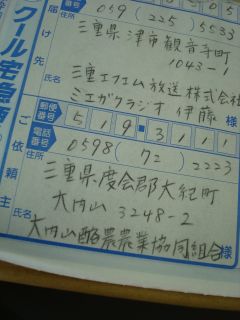 番号 059 (225) 5533
クール宅急便
お届け先
住所
三重県津市観音寺町
1043-1
氏名
三重エフエム放送株式会社
ミエガクラジオ 伊藤 様
郵便番号 519-3111
電話番号 0598 (72) 2223
ご依頼主
住所
三重県度会郡大紀町
大内山 3248-2
氏名
大内山酪農農業協同組合 様